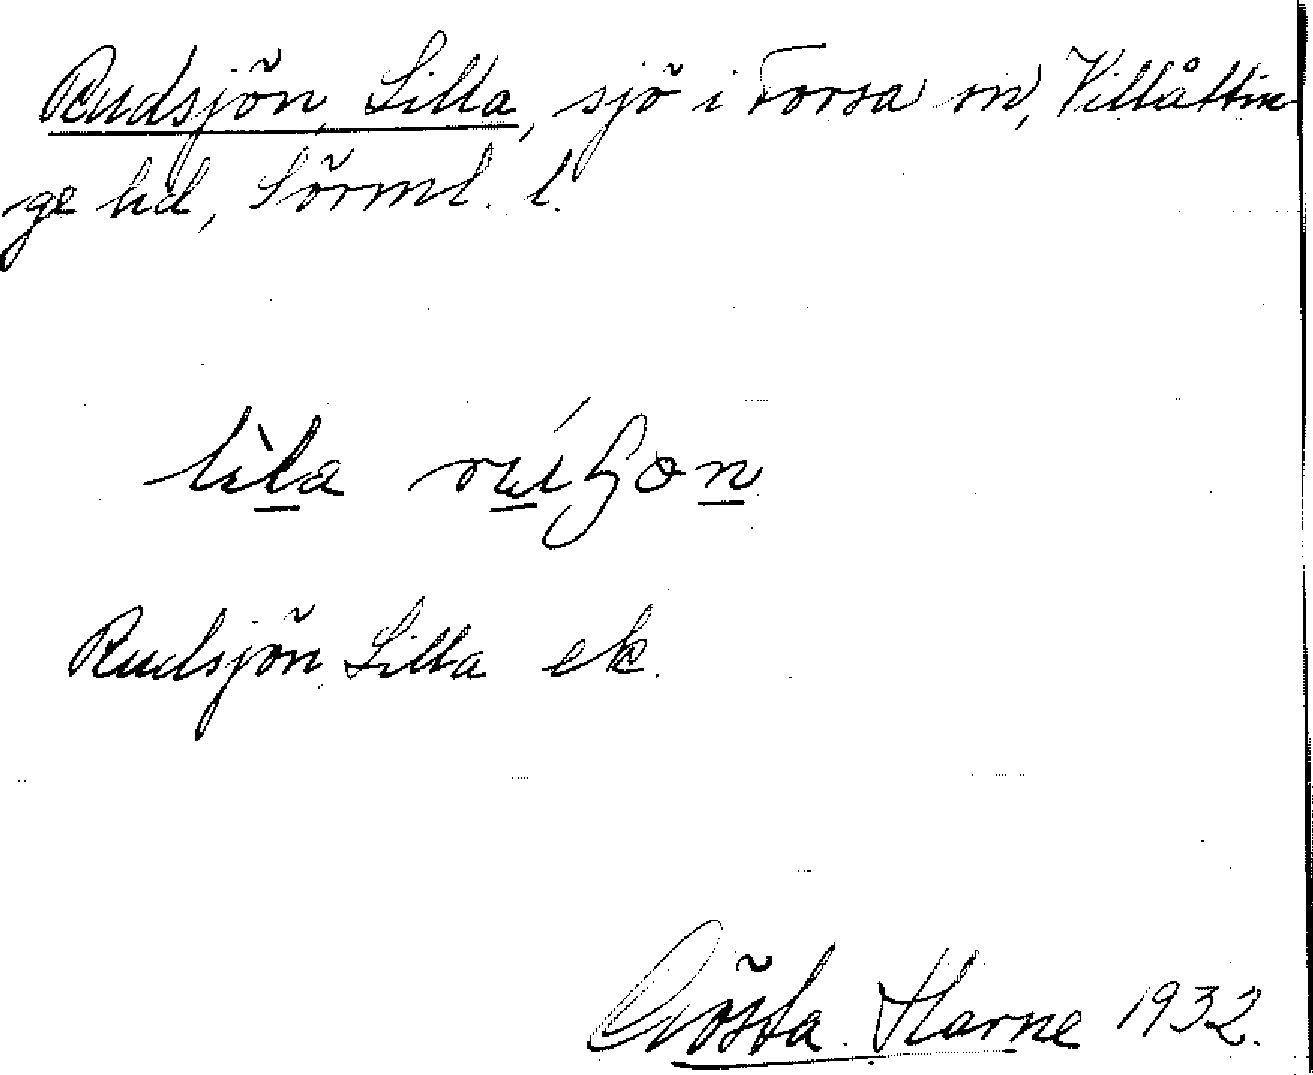 Rudsjön, Lilla, sjö i Forsa sn, Villåttin-
ge hd, Sörml. l.
lìla
Rudsjön, Lilla ek.
Gösta Harne 1932.